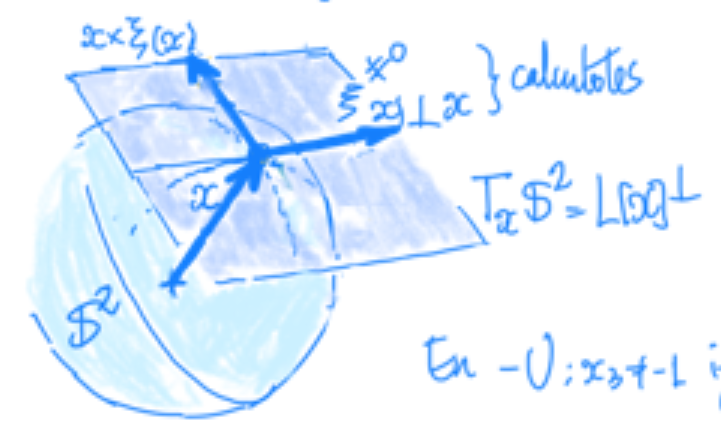 x×ξ(x)
≠0
ξ(x)⊥x } calculotes
x
TₓS²=L[x]⊥
S²
En -U: x₃≠-1